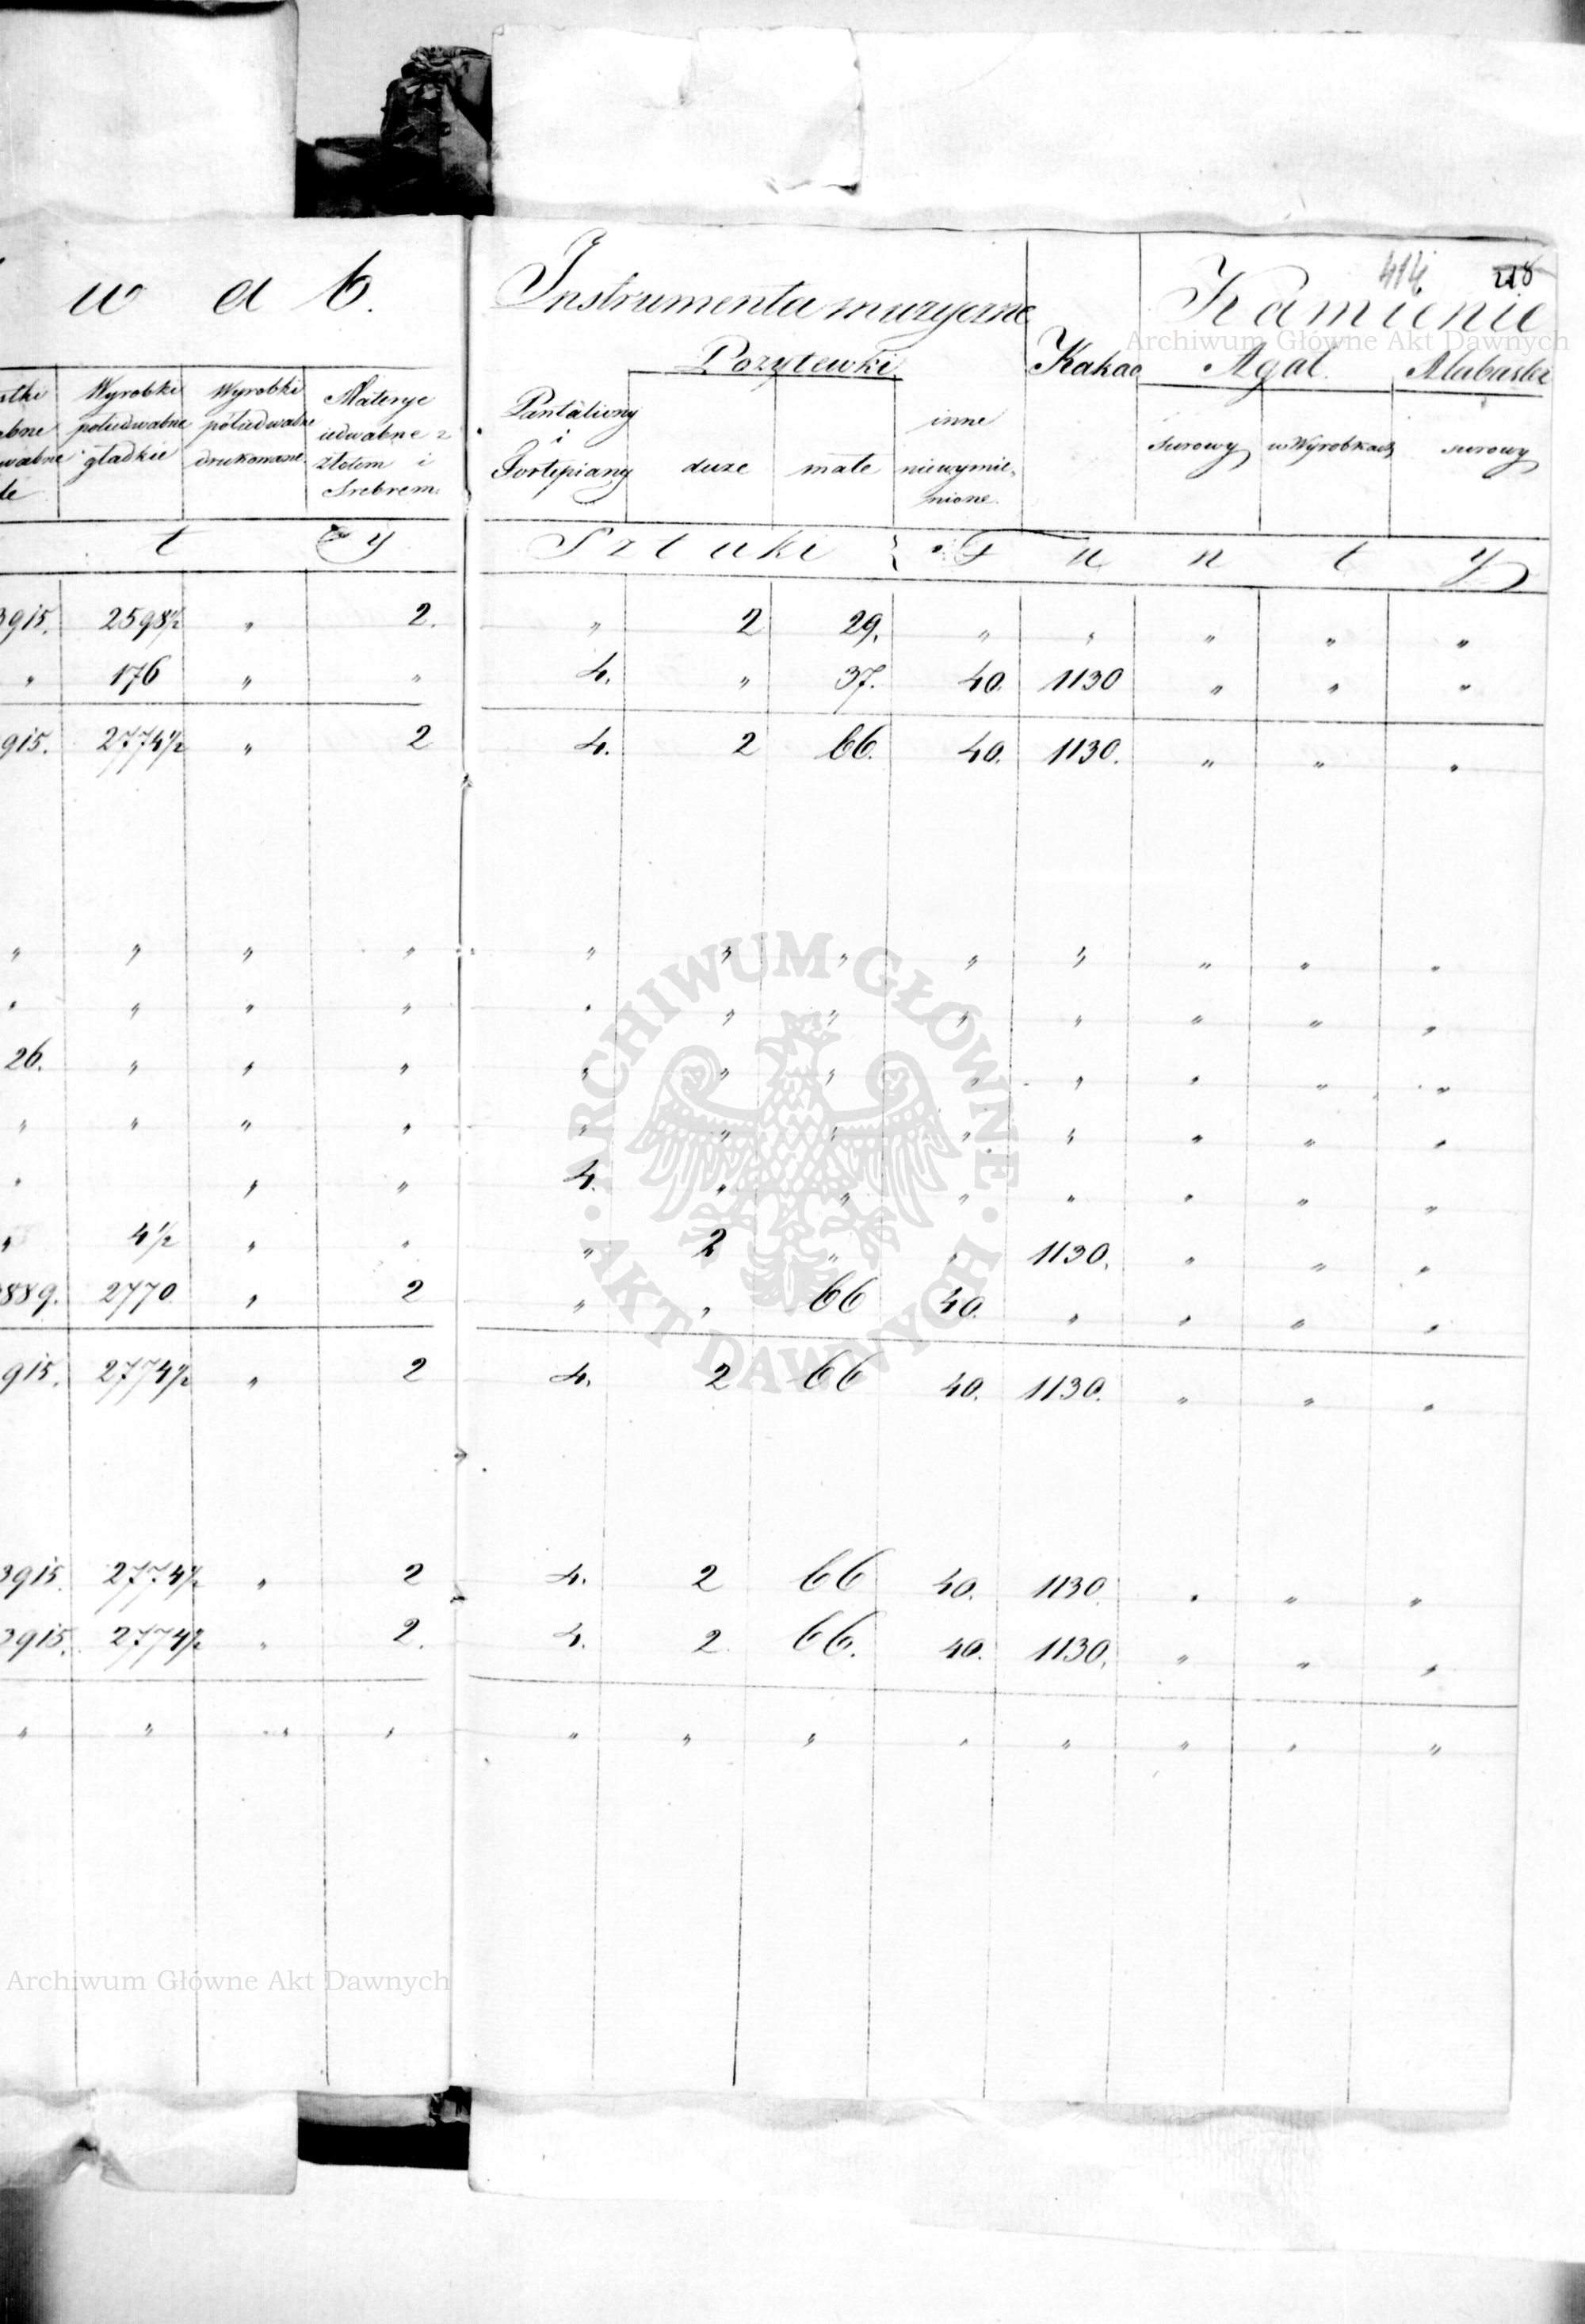 w a b.
Instrumenta muzyczne
414 218
Kamienie
Archiwum Główne Akt Dawnych
Pozytewki Kakao Agat Alabaster
Wyrobki Wyrobki Materye
półiedwabne półiedwabne iedwabne z
gładkie drukowane złotem i
Srebrem
Pantaliony inne
i
Fortepiany duże małe niewymie-
nione
surowy w Wyrobkach surowy
t y Sztuki F u n t y
3915. 2598½ " 2. " 2 29. " " " " "
" 176 " " 4. " 37. 40. 1130 " " "
915. 2774½ " 2 4. 2 66. 40. 1130. " " "
" " " " " " " " " " " "
" " " " " " " " " " " "
26. " " " " " " " " " " "
" " " " " " " " " " " "
" " " 4. " " " " " " "
" 4½ " " " 2 " " 1130. " " "
889. 2770. " 2 " " 66 40. " " " "
915. 2774½ " 2 4. 2 66 40. 1130. " " "
3915. 2774½ " 2 4. 2 66 40. 1130. " " "
3915. 2774½ " 2. 4. 2 66. 40. 1130. " " "
" " " " " " " " " " " "
ARCHIWUM GŁÓWNE
AKT DAWNYCH
Archiwum Główne Akt Dawnych